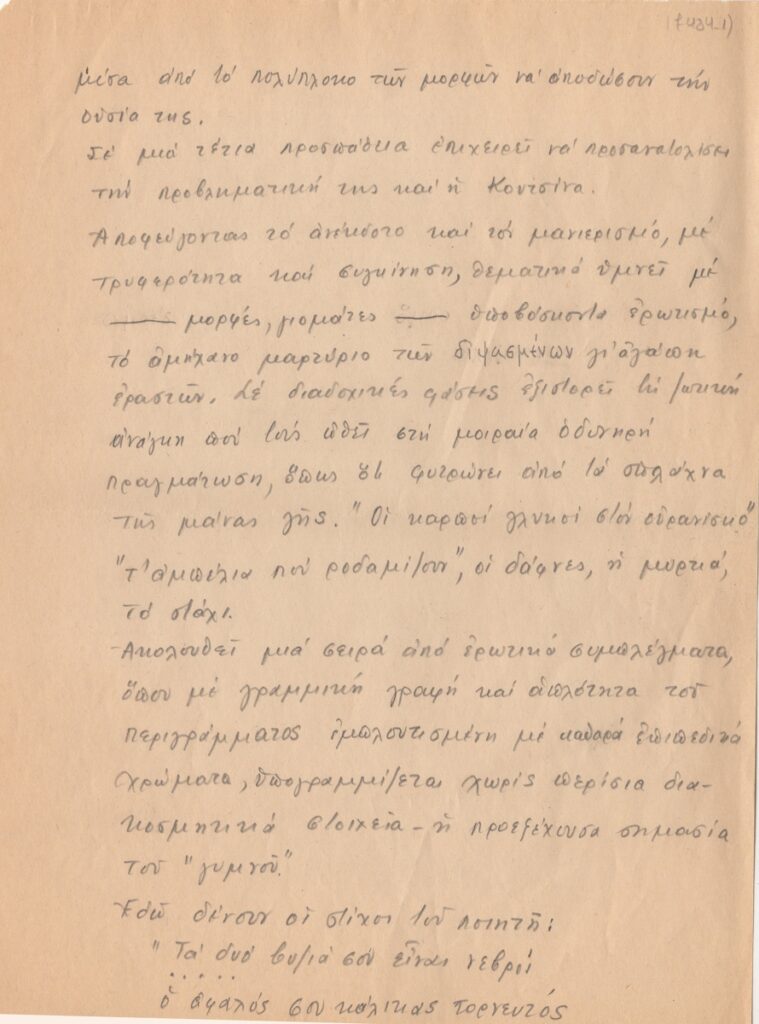 (f434_1)
μέσα ἀπό τό πολύπλοκο τῶν μορφῶν νά ἀποδώσουν τήν
οὐσία της.
Σέ μιά τέτια προσπάθεια ἐπιχειρεῖ νά προσανατολίσει
τήν προβληματική της καί ἡ Κουτσίνα.
Ἀποφεύγοντας τό ἀνέκδοτο καί τόν μανιερισμό, μέ
τρυφερότητα καί συγκίνηση, θεματικά ὑμνεῖ μέ
μορφές, γιομάτες ὑποβόσκοντα ἐρωτισμό,
τό ἀμήχανο μαρτύριο τῶν διψασμένων γι' ἀγάπη
ἐραστῶν. Σέ διαδοχικές φάσεις ἐξιστορεῖ τή ζωτική
ἀνάγκη πού τούς ὠθεῖ στή μοιραία ὀδυνηρή
πραγμάτωση, ὅπως φυτρώνει ἀπό τά σπλάχνα
τῆς μάνας γῆς. "Οἱ καρποί γλυκοί στόν οὐρανίσκο"
"τ' ἀμπέλια πού ροδαμίζουν", οἱ δάφνες, ἡ μυρτιά,
τό στάχι.
Ἀκολουθεῖ μιά σειρά ἀπό ἐρωτικά συμπλέγματα,
ὅπου μέ γραμμική γραφή καί ἁπλότητα τοῦ
περιγράμματος ἐμπλουτισμένη μέ καθαρά ἐπιπεδικά
χρώματα, ὑπογραμμίζεται χωρίς περίσια δια-
κοσμητικά στοιχεῖα - ἡ προεξέχουσα σημασία
τοῦ "γυμνοῦ."
Ἐδῶ δένουν οἱ στίχοι τοῦ ποιητῆ:
"Τά δυό βυζιά σου εἶναι νεβροί
. . . . .
ὁ ἀφαλός σου κάλικας τορνευτός